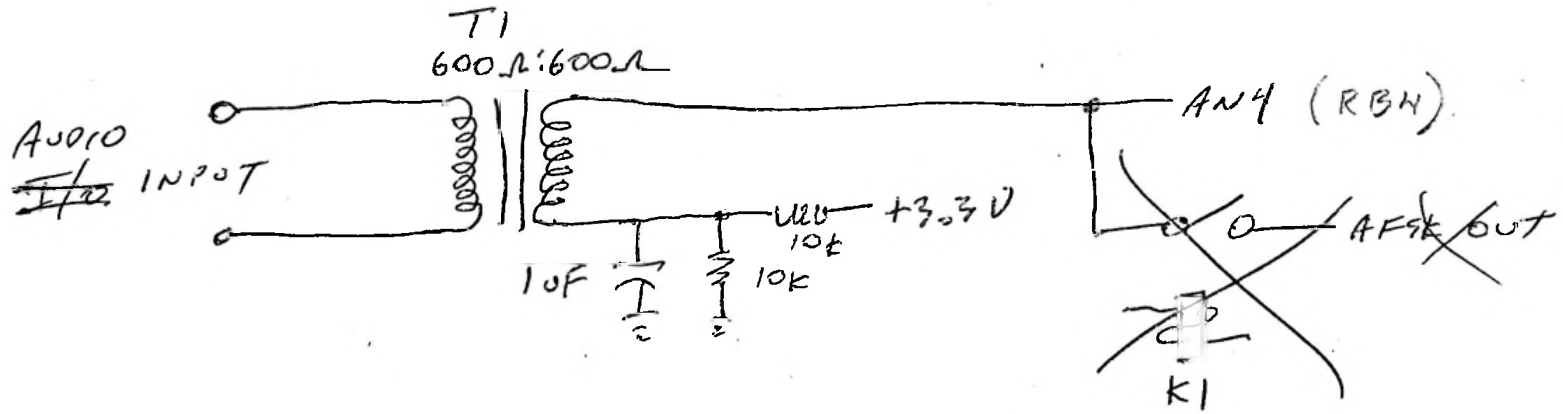 T1
600Ω:600Ω
AUDIO
I/O INPUT
AN4 (RB4)
+3.3V
10k
1uF
10K
AFSK OUT
K1